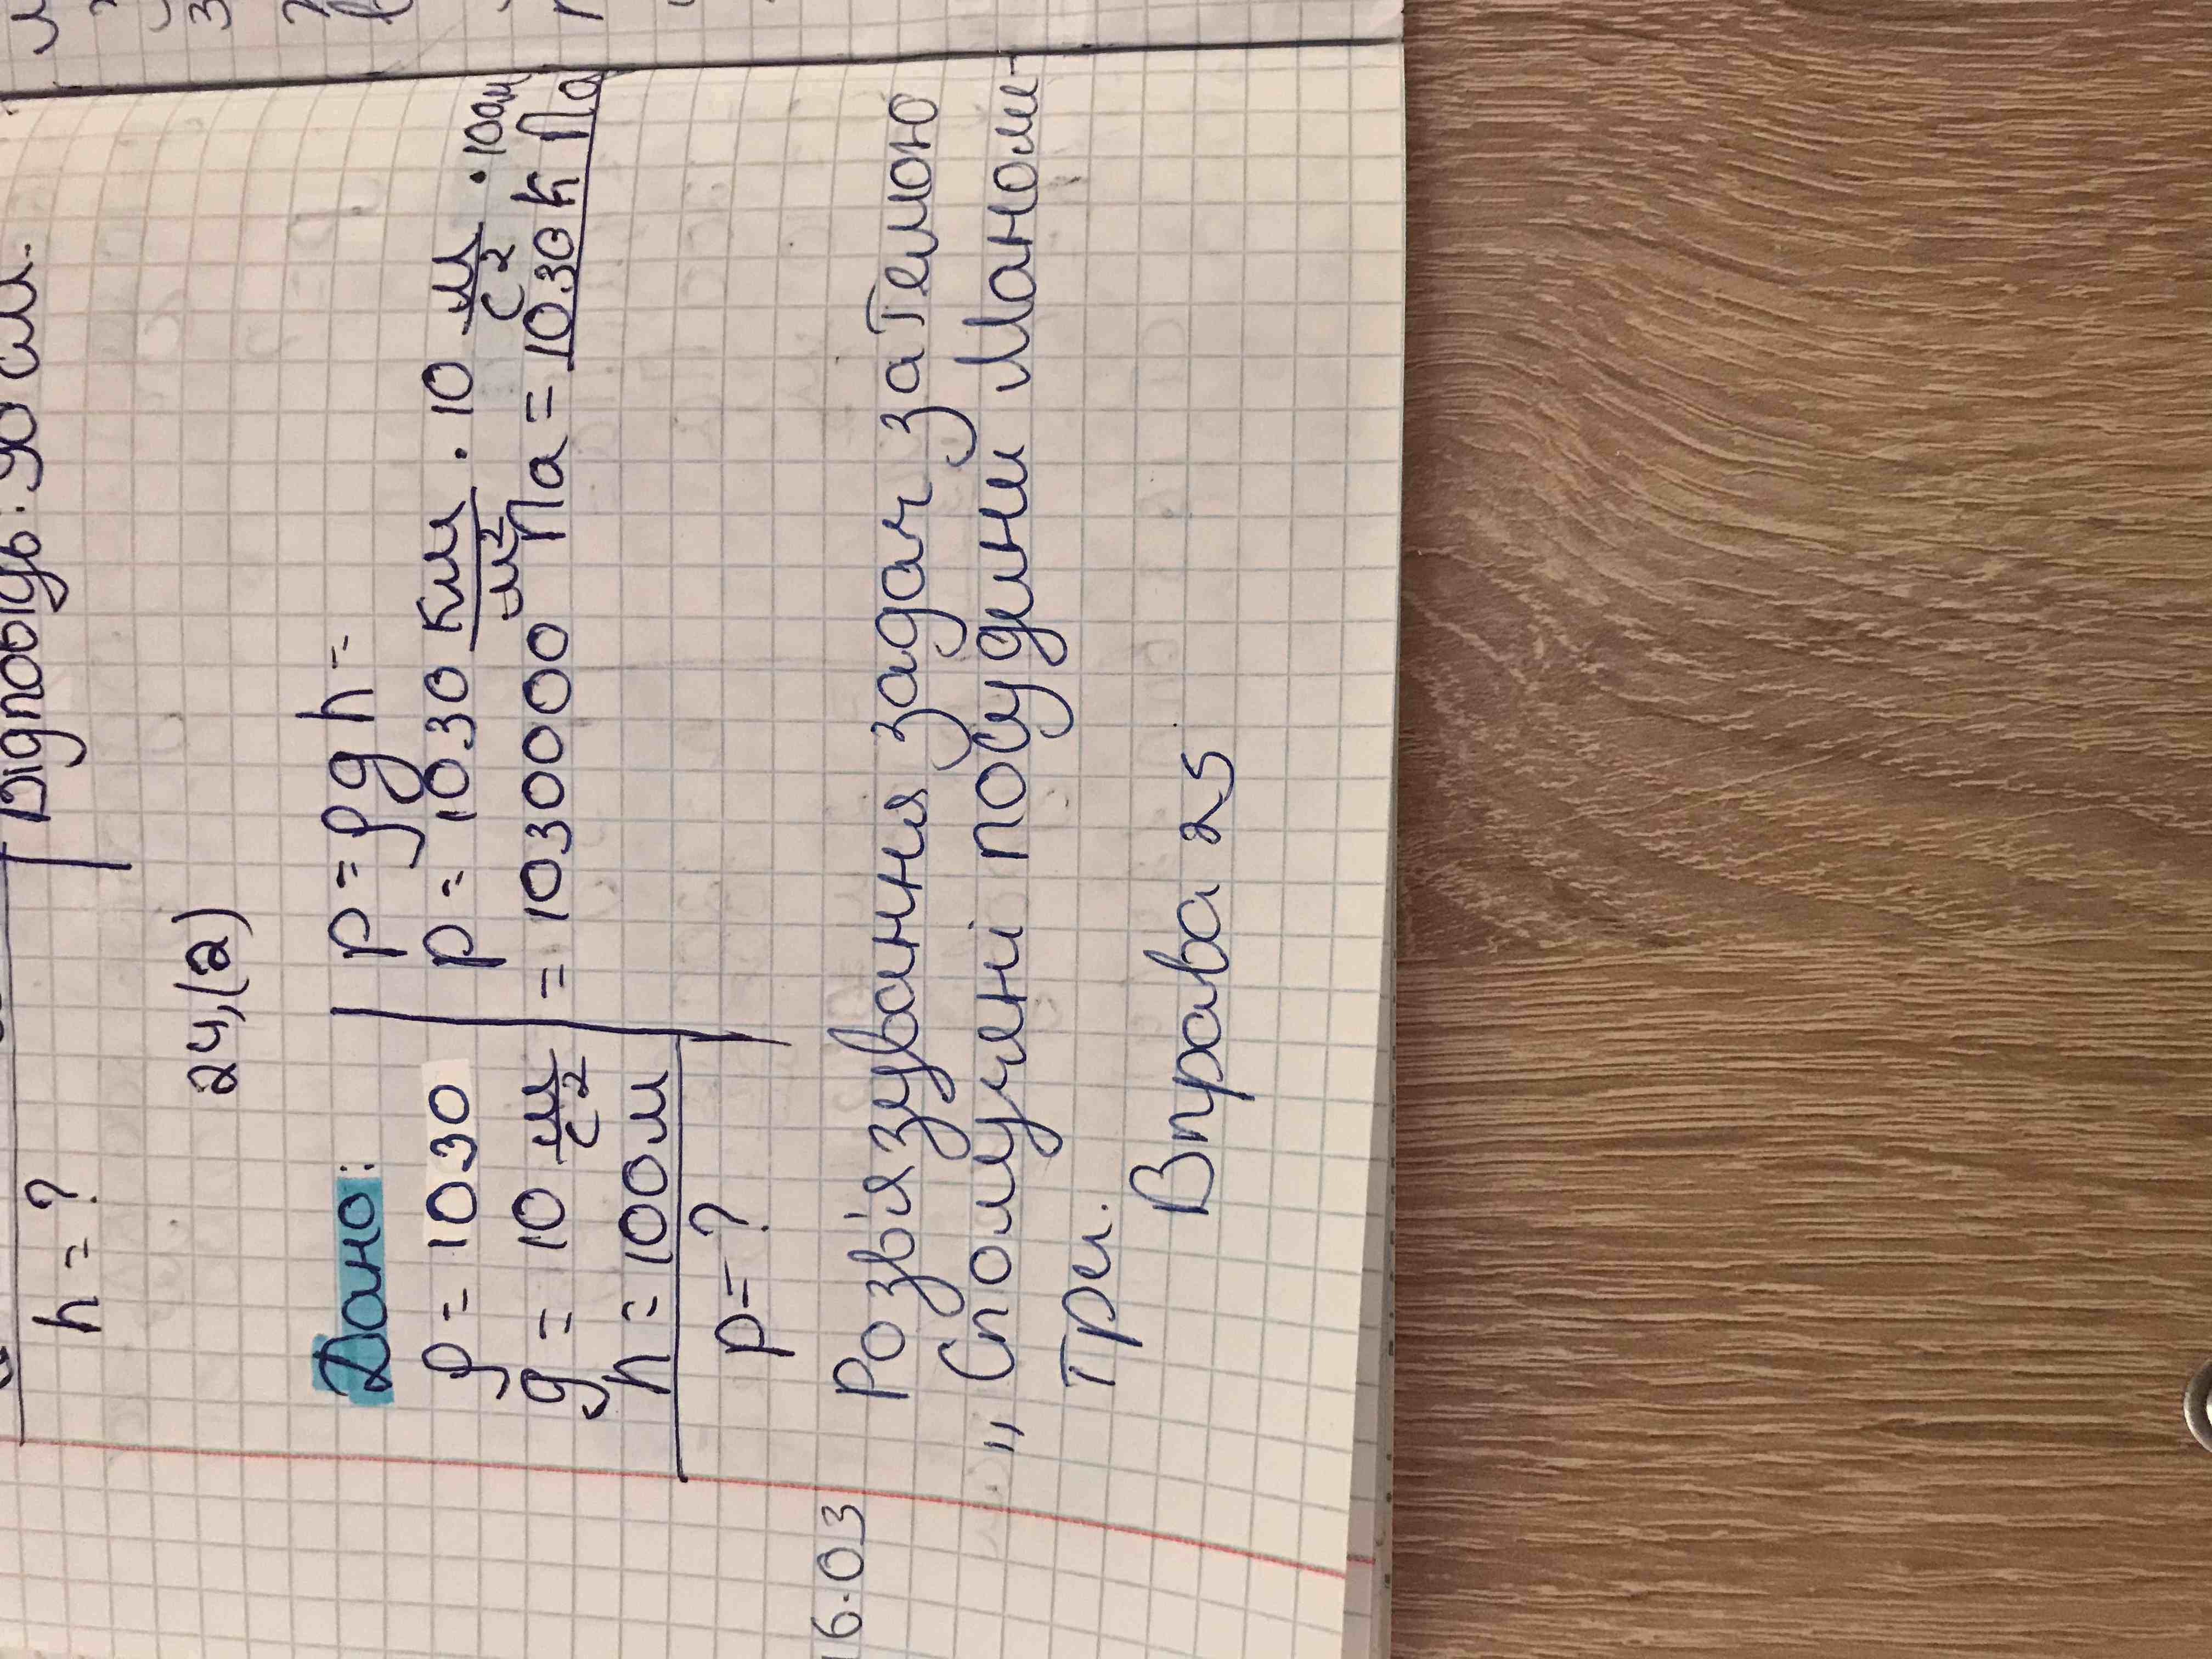 h = ?
Відповідь: 90 см.
24,(2)
Дано:
ρ = 1030
g = 10 м/с²
h = 100 м
p = ?
p = ρgh =
p = 1030 км/м² · 10 м/с² · 100м
= 1030000 Па = 1030 кПа
16.03
Розв'язування задач за темою
„ Сполучені посудини Маноме-
три.
Вправа 25